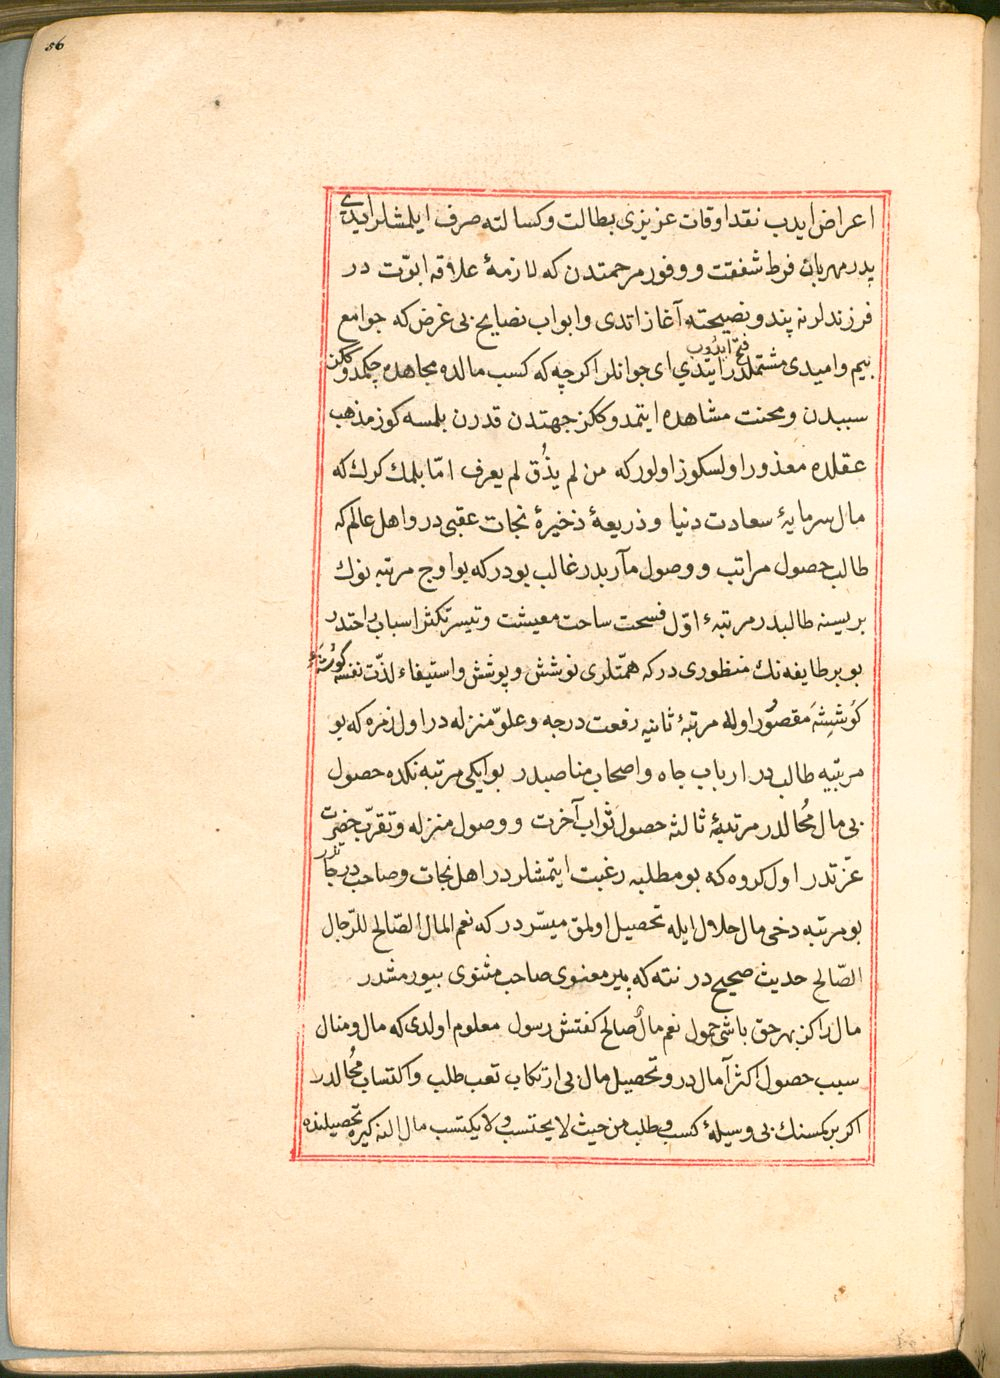 56
اعراض ايدب نقد اوقات عزيزى بطالت وكسالته صرف ايلمشلرايدى
پدر مهربان فرط شفقت و وفور مرحمتدن كه لازمهٔ علاقه ابوّت در
فرزندلرنه پند و نصيحته آغاز اتدى وابواب نصايح بى غرض كه جوامع
فتح ايدوب
بيم واميدى مشتملدر ايتدي اى جوانلر اكرچه كه كسب مالده مجاهده چكمدوكڭن
سببدن ومحنت مشاهده ايتمدوككز جهتدن قدرن بلمسه كوز مذهب
عقلده معذور اولسكوز اولور كه من لم يذُق لم يعرف امّا بلمك كرك كه
مال سرمايهٔ سعادت دنيا و ذريعهٔ ذخيرهٔ نجات عقبى در و اهل عالم كه
طالب حصول مراتب و وصول مآربدر غالب بودر كه بو اوج مرتبه نوك
بريسنه طالبدر مرتبهٔ اوّل فسحت ساحت معيشت وتيسر تكثر اسباب راحتدر
بو بر طايفه نك منظورى در كه همّتلرى نوشش و پوشش و استيفاء لذّت نفسه كورشهٔ
كوششه مقصُور اوله مرتبهٔ ثانيه رفعت درجه وعلوّ منزله در اول زمره كه بو
مرتبيه طالب در ارباب جاه واصحاب مناصبدر بو ايكى مرتبه نكده حصول
بى مال مُحالدر مرتبهٔ ثالثه حصول ثواب آخرت و وصول منزله وتقرّب حضرت
عزّتدر اول كروه كه بو مطلبه رغبت ايتمشلر در اهل نجات وصاحب درجاتدر
بو مرتبه دخى مال حلال ايله تحصيل اولمق ميسّر در كه نعم المال الصّالح للرّجال
الصّالح حديث صحيح در نته كه پير معنوى صاحب مثنوى بيورمشدر
مال راكز بهر حق باشى حمول نعم مالُ صالح كفتش رسول معلوم اولدى كه مال و منال
سبب حصول اكثر آمال در و تحصيل مال بى ارتكاب تعب طلب واكتساب مُحالدر
اكر بر كمسنك بى وسيلهٔ كسب و طلب من حيث لا يحتسب ولا يكتسب مال النه كيره تحصيلنده